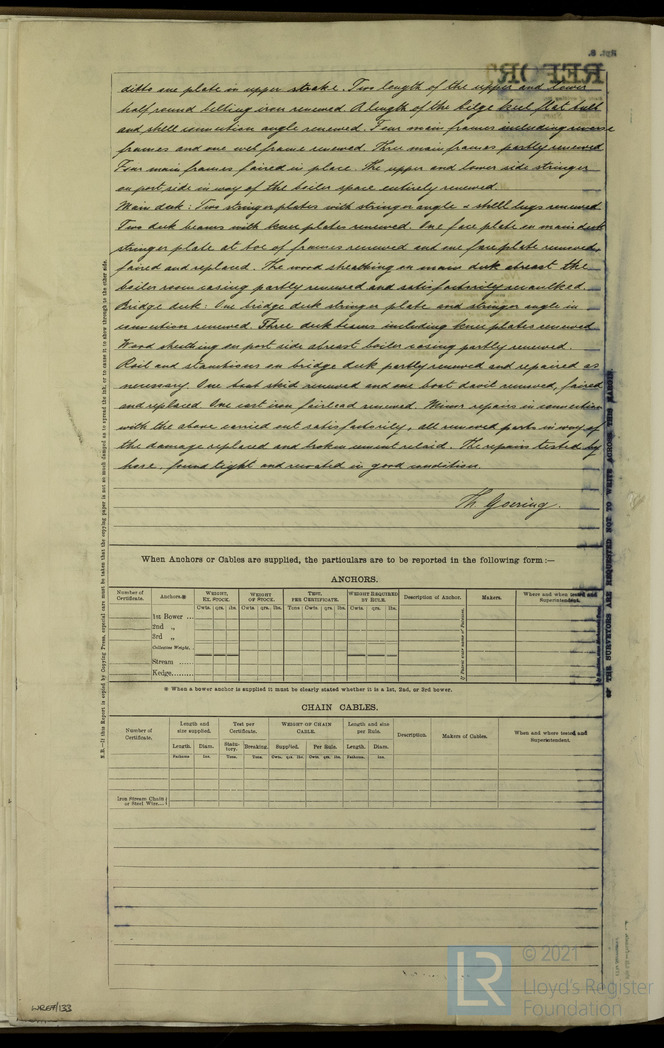 Rpt. 8.
REPORT
ditto one plate in upper strake. Two length of the upper and lower
half round belting iron renewed. A length of the bilge keel flat bulb
and shell connection angle renewed. Four main frames including reverse
frames and one web frame renewed. Three main frames partly renewed
Four main frames faired in place. The upper and lower side stringer
on port side in way of the boiler space entirely renewed
Main deck: Two stringer plates with stringer angle & shell lugs renewed
Two deck beams with knee plates renewed. One face plate on main deck
stringer plate at toe of frames renewed and one face plate removed,
faired and replaced. The wood sheathing on main deck abreast the
boiler room casing partly renewed and satisfactorily recaulked.
Bridge deck: One bridge deck stringer plate and stringer angle in
connection renewed. Three deck beams including knee plates renewed
Wood sheathing on port side abreast boiler casing partly renewed.
Rail and stanchions on bridge deck partly renewed and repaired as
necessary. One boat skid renewed and one boat davit removed, faired
and replaced. One cast iron fairlead renewed. Minor repairs in connection
with the above carried out satisfactorily, all removed parts in way of
the damage replaced and broken cement relaid. The repairs tested by
hose, found tight and recoated in good condition.
Th. Goering.
When Anchors or Cables are supplied, the particulars are to be reported in the following form :—
ANCHORS.
Number of Certificate. Anchors※ WEIGHT, EX. STOCK. WEIGHT OF STOCK. TEST, PER CERTIFICATE. WEIGHT REQUIRED BY RULE. Description of Anchor. Makers. Where and when tested and Superintendent.
Cwts. qrs. lbs. Cwts. qrs. lbs. Tons Cwts. qrs. lbs. Cwts. qrs. lbs.
1st Bower ...
2nd „
3rd „
Collective Weight
Stream ......
Kedge.........
※ When a bower anchor is supplied it must be clearly stated whether it is a 1st, 2nd, or 3rd bower.
CHAIN CABLES.
Number of Certificate. Length and size supplied. Test per Certificate. WEIGHT OF CHAIN CABLE. Length and size per Rule. Description. Makers of Cables. When and where tested, and Superintendent.
Length. Diam. Statutory. Breaking. Supplied. Per Rule. Length. Diam.
Fathoms Ins. Tons. Tons. Cwts. qrs. lbs. Cwts. qrs. lbs. Fathoms. Ins.
Iron Stream Chain
or Steel Wire...
N.B.—If this Report is copied by Copying Press, especial care must be taken that the copying paper is not so much damped as to spread the ink, or to cause it to show through to the other side.
THE SURVEYORS ARE REQUESTED NOT TO WRITE ACROSS THIS MARGIN
WRE7/133
LR
© 2021
Lloyd's Register
Foundation